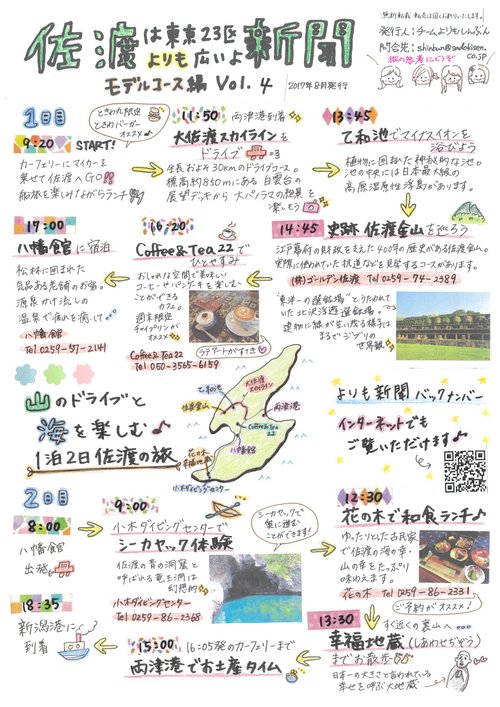 無断転載、転売は固くお断りいたします。
発行人：チームよりもしんぶん
問合先：shinbun@sadokisen.co.jp
旅の参考にどうぞ
佐渡は東京23区よりも広いよ新聞
モデルコース編 Vol.4
2017年8月発行
1日目
9:20 START!
ときわ丸限定
ときわバーガー
オススメ♪
カーフェリーにマイカーを
乗せて佐渡へGO
船旅を楽しみながらランチ
11:50 両津港到着
大佐渡スカイラインを
ドライブ
全長およそ30kmのドライブコース。
標高約850mにある白雲台の
展望デッキから大パノラマの絶景を
楽しもう
13:45
乙和池でマイナスイオンを
浴びよう
植物に囲まれた神秘的な池。
池の中央には日本最大級の
高層湿原性浮島があります。
14:45 史跡 佐渡金山を巡ろう
江戸幕府の財政を支えた400年の歴史がある佐渡金山。
実際に使われていた坑道などを見学するコースがあります。
(株)ゴールデン佐渡 Tel 0259-74-2389
"東洋一の選鉱場"とうたわれて
いた北沢浮遊選鉱場。
建物に緑が生い茂る様子は
まるでジブリの
世界観
16:20
Coffee&Tea22で
ひとやすみ
おしゃれな空間で美味しい
コーヒーやパンケーキを楽しむ
ことができる
カフェ。
週末限定
チャイプリンが
オススメ
Coffee&Tea22
Tel 050-3565-6159
ラテアートがすてき
17:00
八幡館に宿泊
松林に囲まれた
気品ある老舗のお宿。
源泉かけ流しの
温泉で疲れを癒して
八幡館
Tel 0259-57-2141
山のドライブと
海を楽しむ♪
1泊2日佐渡の旅
大佐渡
スカイライン
乙和池
佐渡金山
両津港
Coffee&Tea
22
八幡館
花の木
幸福地蔵
小木ダイビングセンター
よりも新聞バックナンバー
インターネットでも
ご覧いただけます♪
2日目
8:00
八幡館
出発
9:00
小木ダイビングセンターで
シーカヤック体験
シーカヤックで
奥に進む
ことができます!
佐渡の青の洞窟と
呼ばれる竜王洞は
幻想的
小木ダイビングセンター
Tel 0259-86-2368
12:30
花の木で和食ランチ♪
ゆったりとした古民家
で佐渡の海の幸、
山の幸をたっぷり
味わえます。
花の木 Tel 0259-86-2331
ご予約がオススメ!
13:30 すぐ近くの裏山へ・・・
幸福地蔵(しあわせじぞう)
までお散歩
日本一の大きさと言われている
幸せを呼ぶ大地蔵
15:00 16:05発のカーフェリーまで
両津港でお土産タイム
18:35
新潟港に
到着